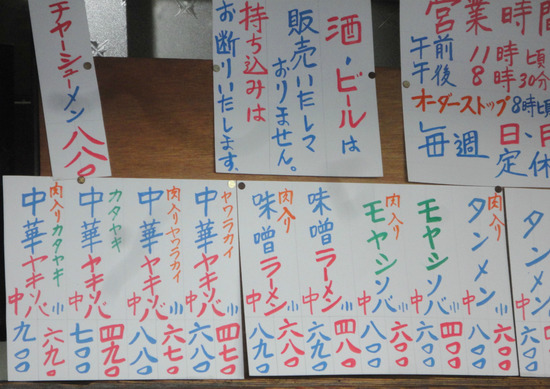 営業時間
午前11時頃
午後8時30分
オーダーストップ8時頃
毎週日、月
定休
酒・ビールは
販売いたして
おりません。
持ち込みは
お断りいたします。
チャーシューメン八八〇
タン
肉入り
タンメン
小 六〇〇
中 八〇〇
モヤシソバ
小 四〇〇
中 六〇〇
肉入り
モヤシソバ
小 六〇〇
中 八〇〇
味噌ラーメン
小 四八〇
中 六九〇
肉入り
味噌ラーメン
小 六八〇
中 八九〇
ヤワラカイ
中華ヤキソバ
小 四七〇
中 六八〇
肉入りヤワラカイ
中華ヤキソバ
小 六七〇
中 八八〇
カタヤキ
中華ヤキソバ
小 四九〇
中 七〇〇
肉入りカタヤキ
中華ヤキソバ
小 六九〇
中 九〇〇